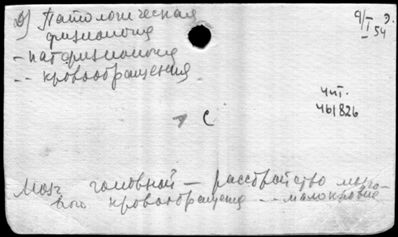 д) Патологическая
физиология
– патфизиология
-"- кровообращения.
9/I 54 э.
чит.
461826
С
Мозг головной – расстройство мозго-
вого кровообращения -"- малокровие